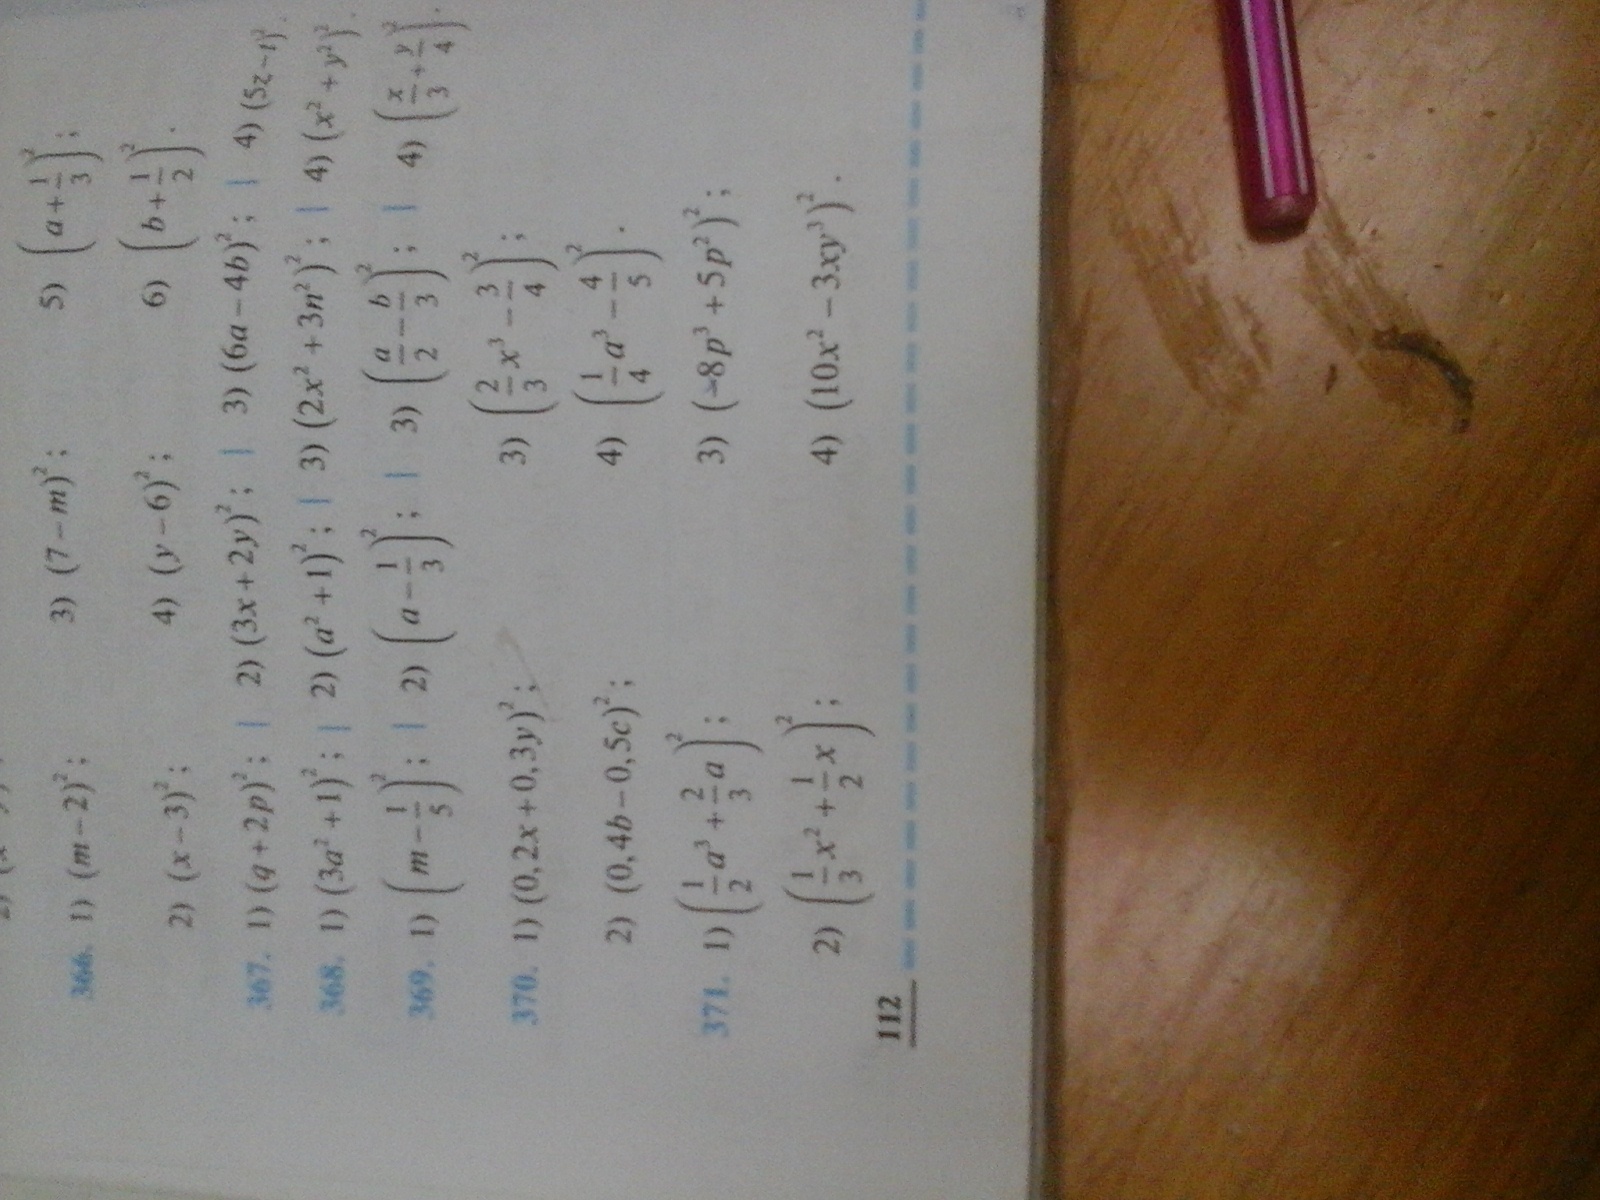 366. 1) (m − 2)²; 3) (7 − m)²; 5) (a + 1/3)²;
2) (x − 3)²; 4) (y − 6)²; 6) (b + 1/2)².
367. 1) (q + 2p)²; | 2) (3x + 2y)²; | 3) (6a − 4b)²; | 4) (5z − 1)².
368. 1) (3a² + 1)²; | 2) (a² + 1)²; | 3) (2x² + 3n²)²; | 4) (x² + y²)².
369. 1) (m − 1/5)²; | 2) (a − 1/3)²; | 3) (a/2 − b/3)²; | 4) (x/3 + y/4)².
370. 1) (0,2x + 0,3y)²; 3) (2/3 x³ − 3/4)²;
2) (0,4b − 0,5c)²; 4) (1/4 a³ − 4/5)².
371. 1) (1/2 a³ + 2/3 a)²; 3) (−8p³ + 5p²)²;
2) (1/3 x² + 1/2 x)²; 4) (10x² − 3xy³)².
112